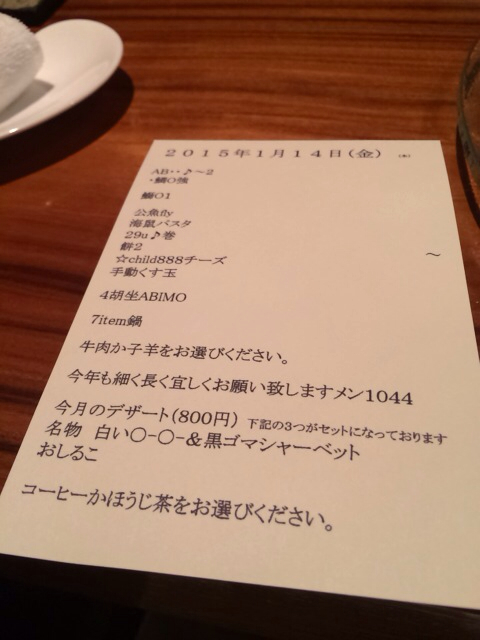 ２０１５年１月１４日（金）
AB‥♪～2
・鱈O強
鰤O1
公魚fly
海鼠パスタ
29u♪巻
餅2
～
☆child888チーズ
手動くす玉
4胡坐ABIMO
7item鍋
牛肉か子羊をお選びください。
今年も細く長く宜しくお願い致しますメン1044
今月のデザート(800円) 下記の3つがセットになっております
名物 白い○-○-＆黒ゴマシャーベット
おしるこ
コーヒーかほうじ茶をお選びください。